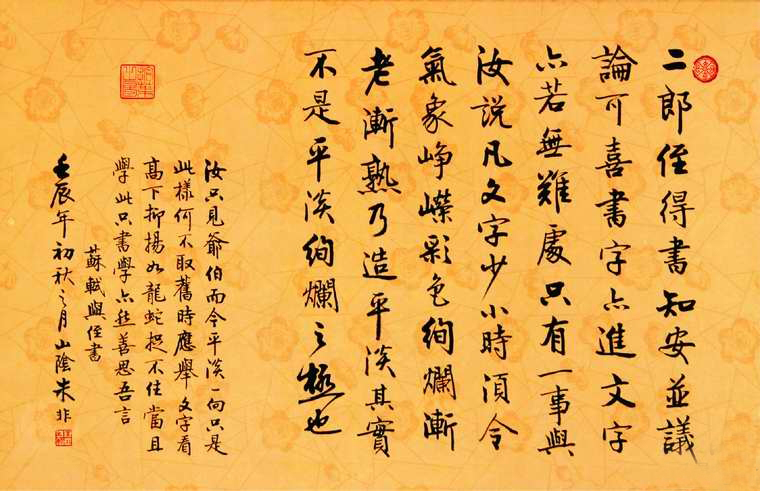 二郎侄得書知安並議
論可喜書字亦進文字
亦若無難處只有一事與
汝說凡文字少小時須令
氣象崢嶸彩色絢爛漸
老漸熟乃造平淡其實
不是平淡絢爛之極也
汝只見爺伯而今平淡一向只是
此樣何不取舊時應舉文字看
高下抑揚如龍蛇捉不住當且
學此只書學亦然善思吾言
蘇軾與侄書
壬辰年初秋之月山陰朱非